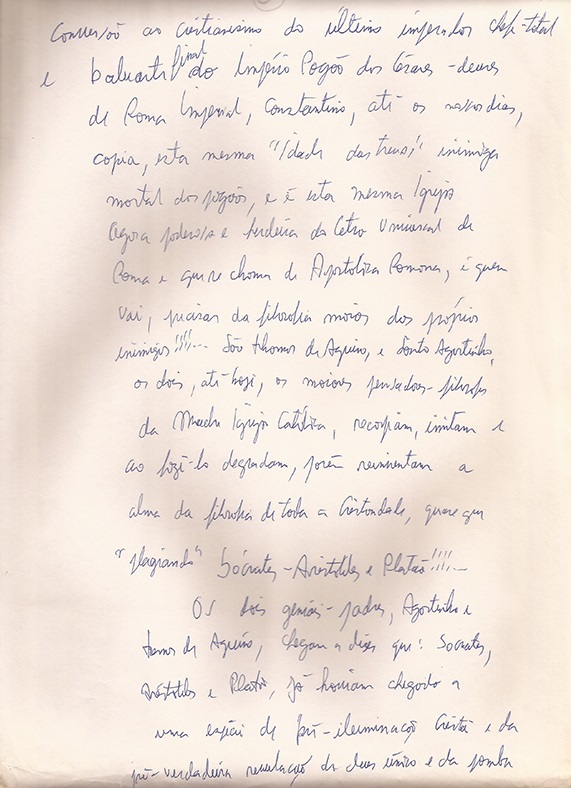 Conversão ao cristianismo do último imperador chefe-total
e baluarte final do Império Pagão dos Césares-deuses
de Roma Imperial, Constantino, até os nossos dias,
copia, esta mesma "Idade das trevas," inimiga
mortal dos pagãos, e é esta mesma Igreja
Agora poderosa e herdeira do Cetro Universal de
Roma e que se chama de Apostólica Romana, é quem
vai, precisar da filosofia maior dos próprios
inimigos!!!!... São Thomas de Aquino, e Santo Agostinho,
os dois, até hoje, os maiores pensadores-filósofos
da Madre Igreja Católica, recopiam, imitam e
ao fazê-lo degradam, porém reinventam a
alma da filosofia de toda a Cristandade, quase que
"plagiando" Sócrates-Aristóteles e Platão!!!!...
Os dois geniais-padres, Agostinho e
Tomas de Aquino, chegam a dizer que: Sócrates,
Aristóteles e Platão, já haviam chegado a
uma espécie de pré-iluminação Cristã e da
pré-verdadeira revelação do deus único e da pomba